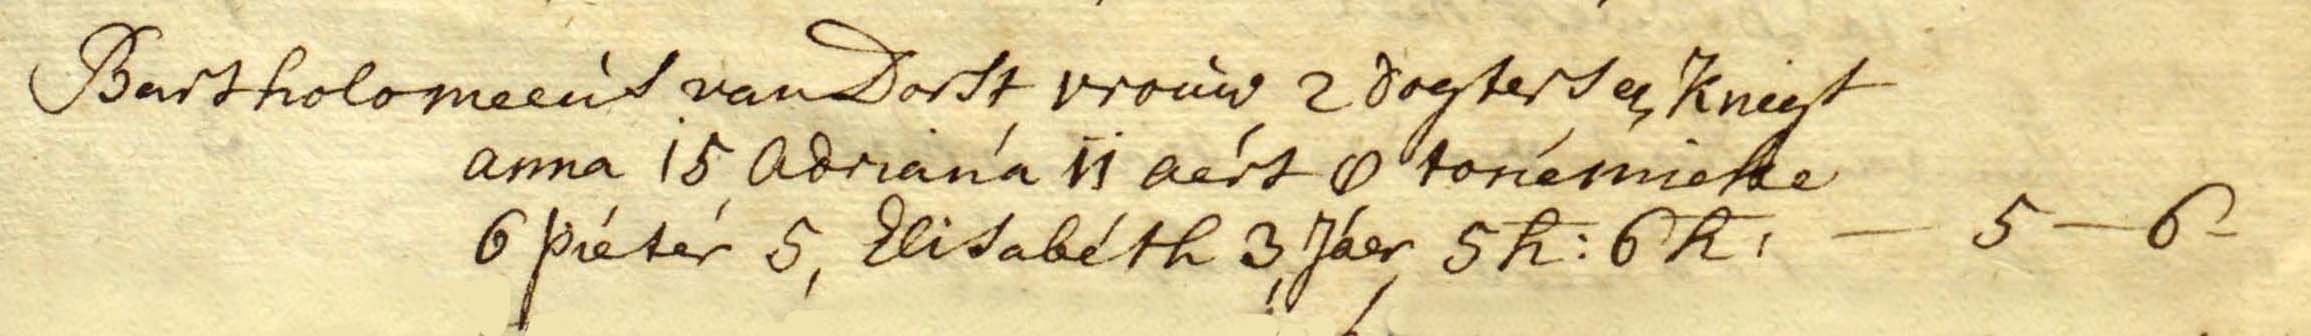 Bartholomeeùs van Dorst, vrouw, 2 dogters en Knegt
anna 15, Adriána 11 aért 8 tonémieke
6 piétér 5, Elisabéth 3, Jáer, 5 h: 6 k, — 5 — 6 -